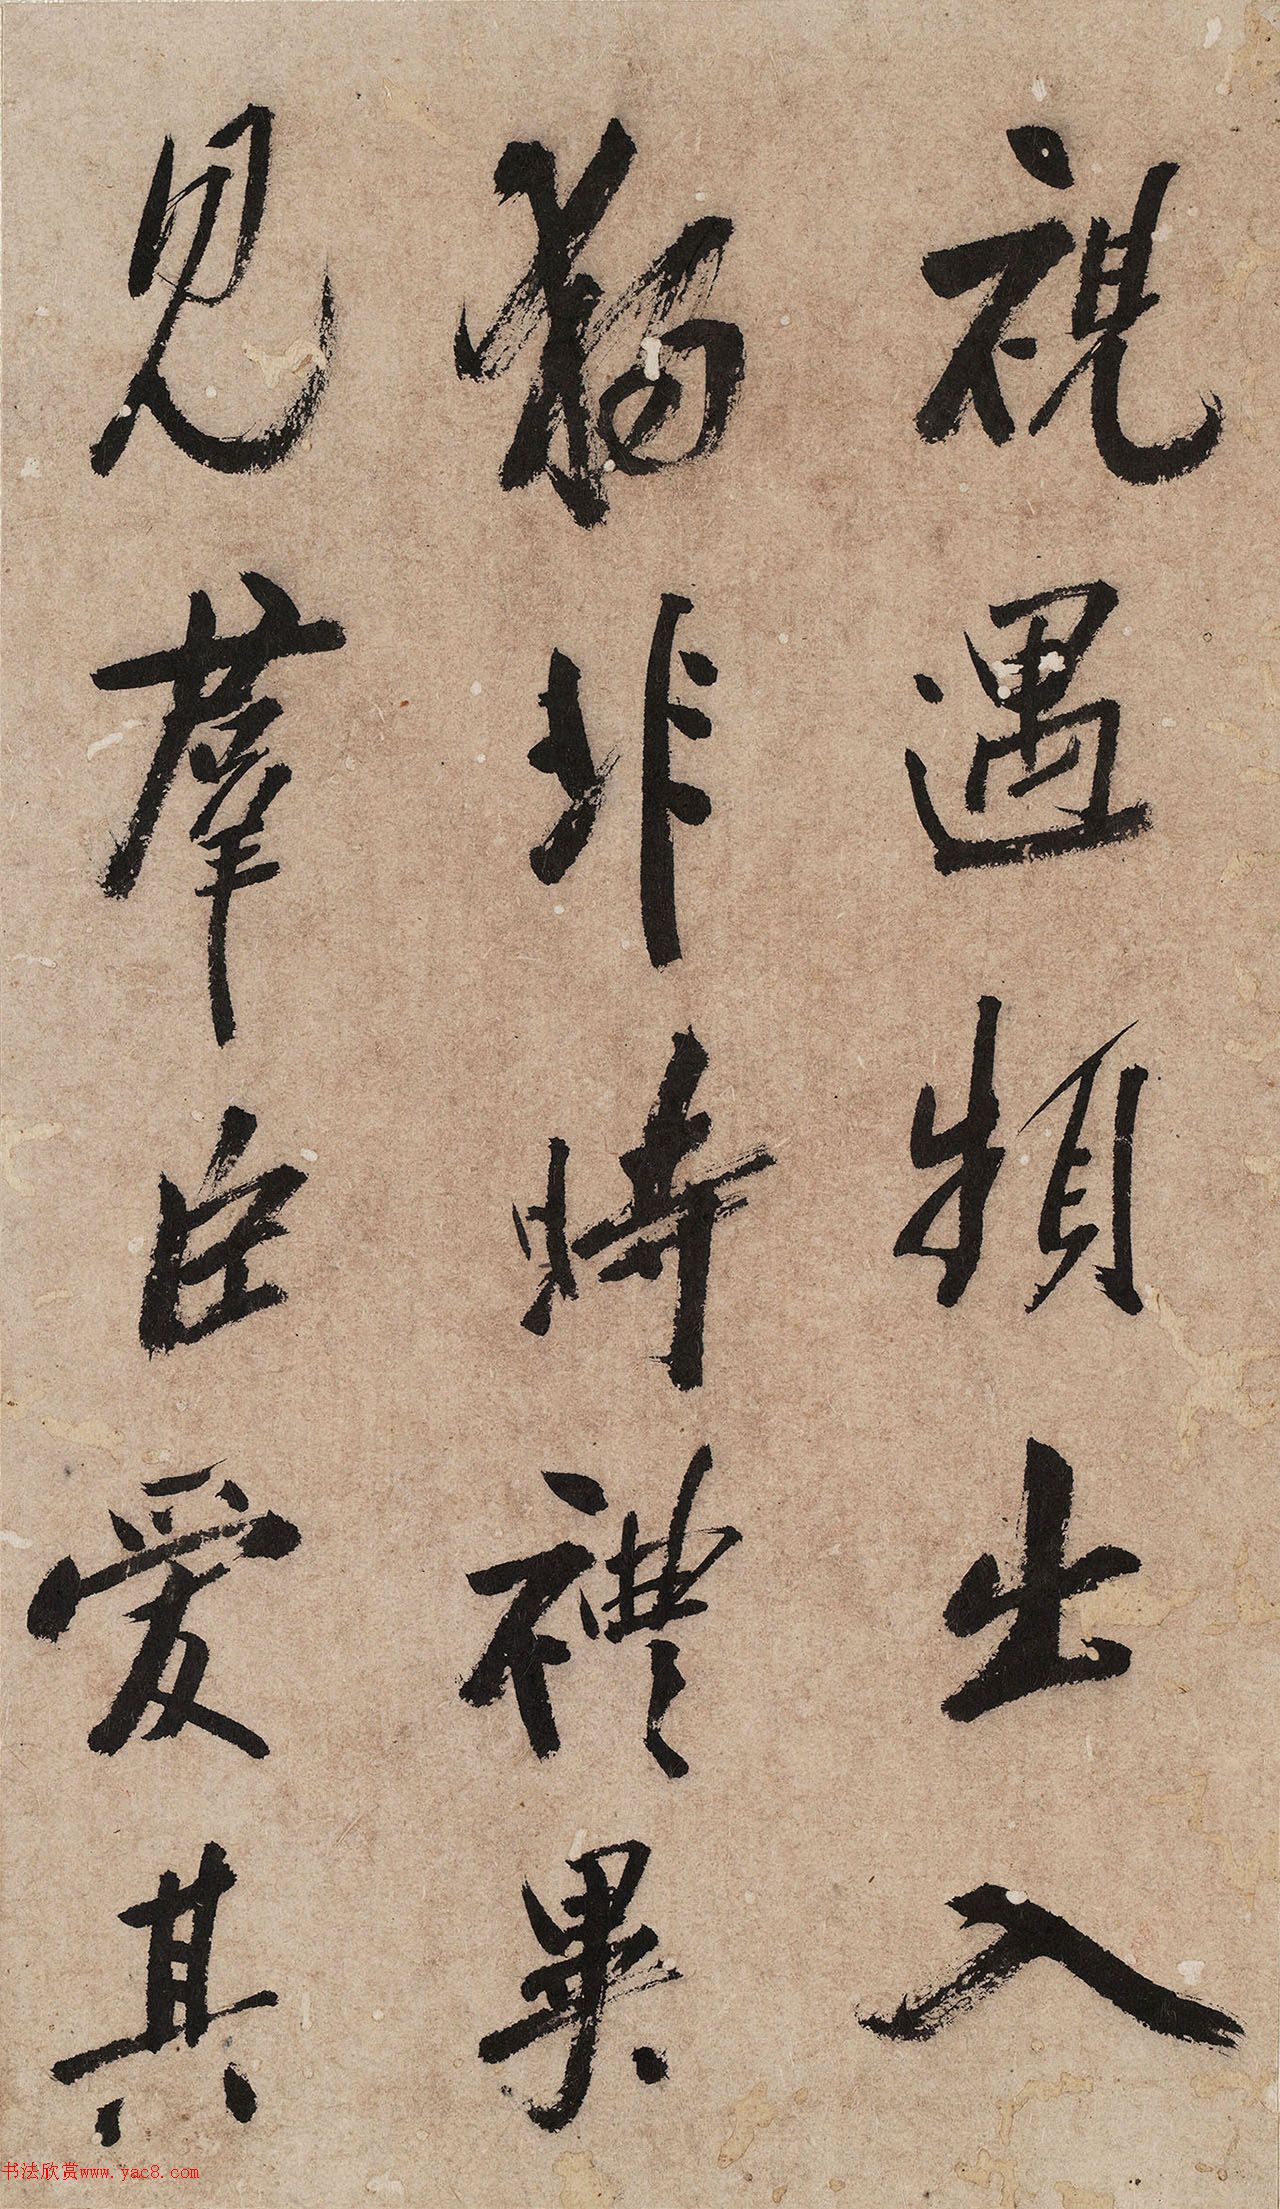 視遇頻出入
獨非時禮異
見羣臣愛其
书法欣赏www.yac8.com